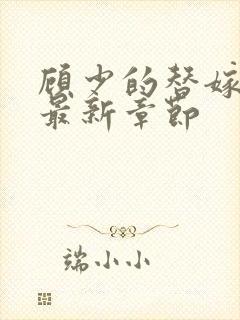 顾少的替嫁
最新章节
端小小